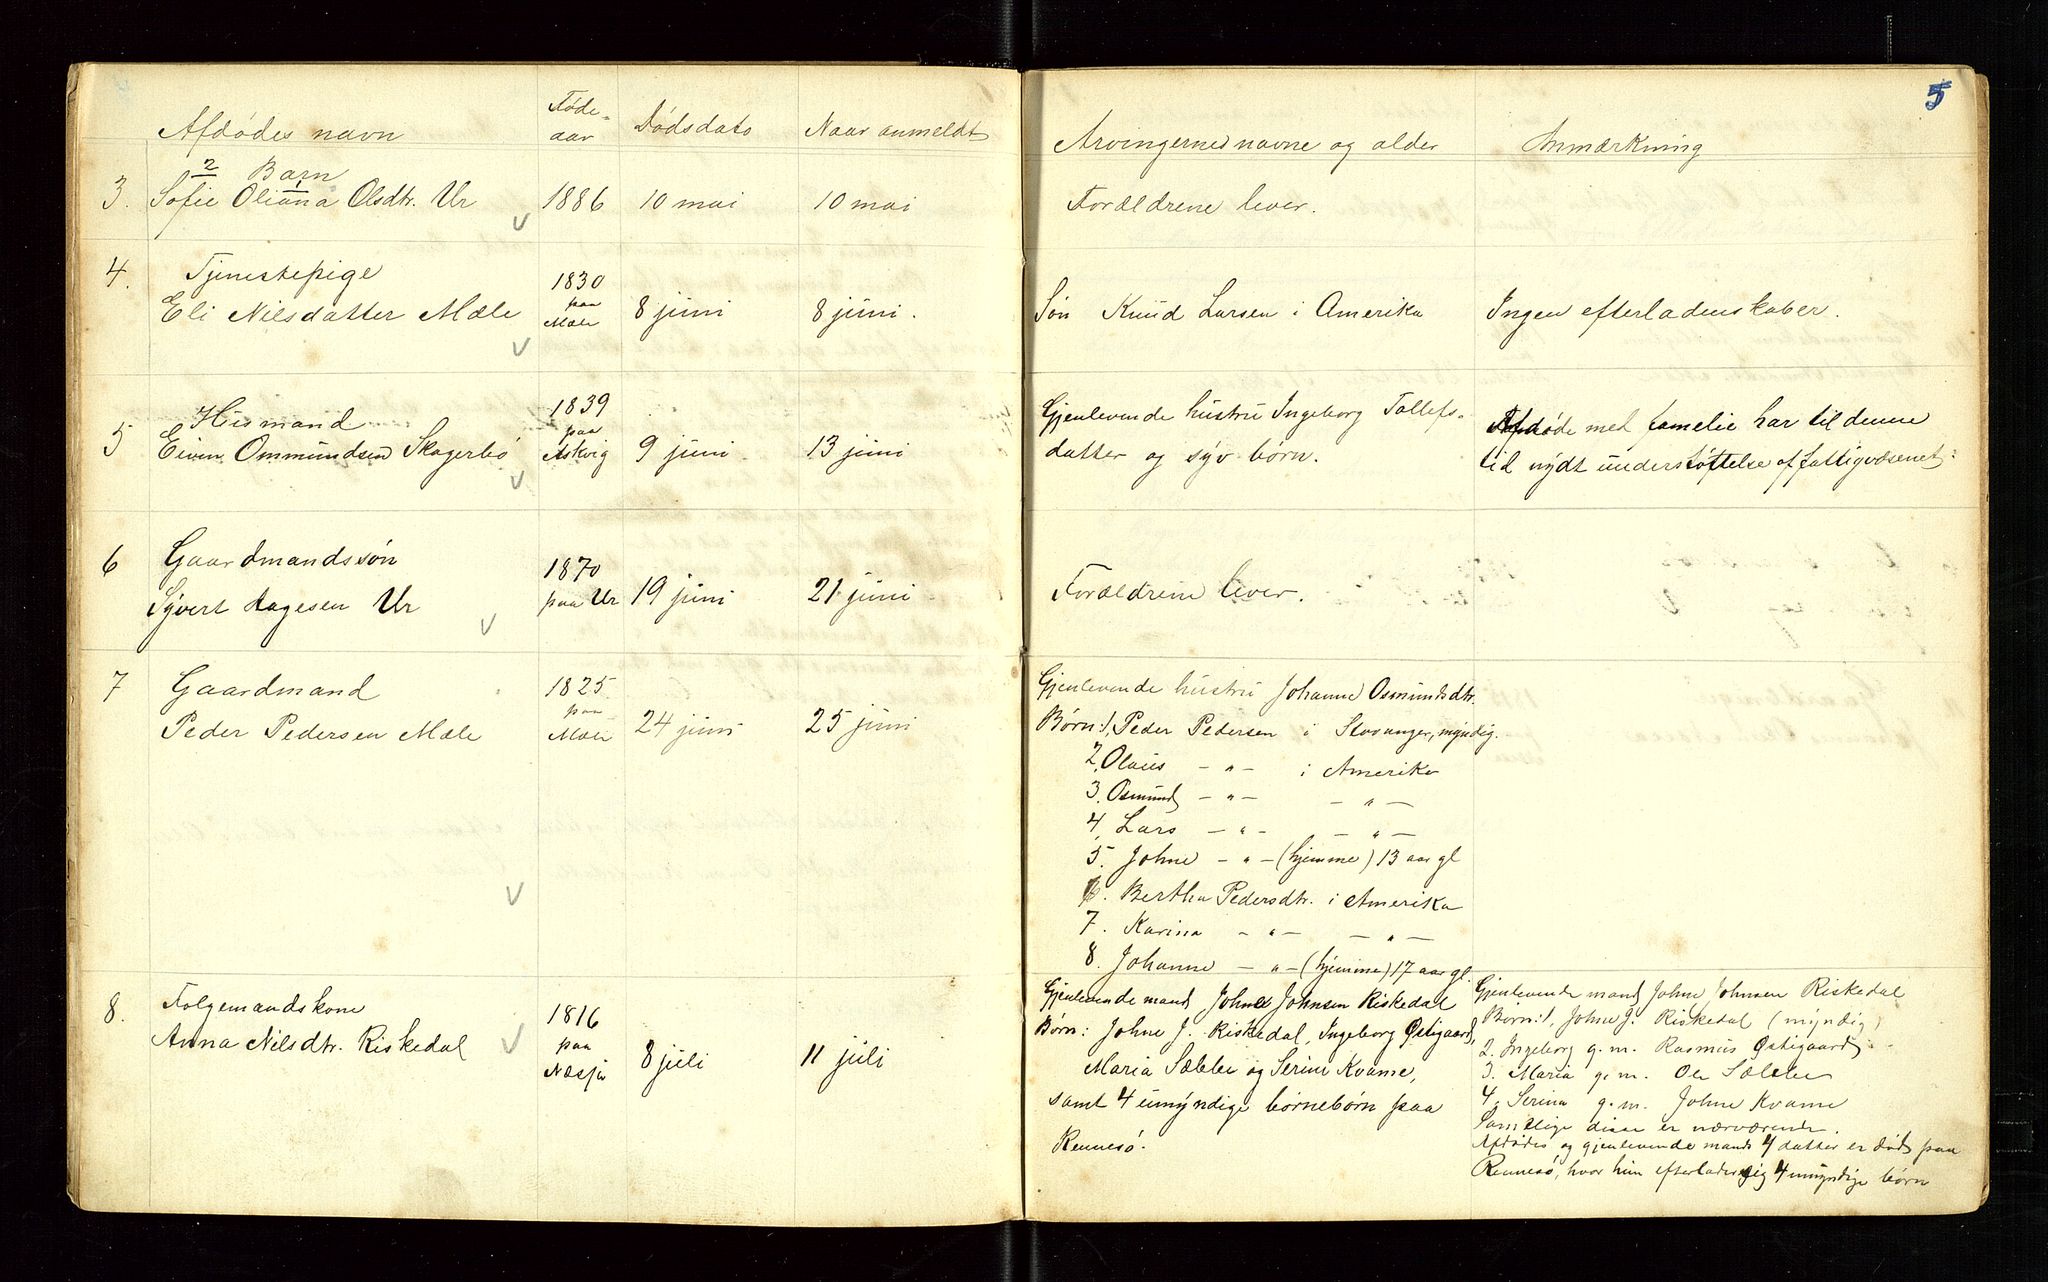 5
Afdødes navn Føde-aar Dødsdato Naar anmeldt Arvingernes navne og alder Anmærkning
2 Barn 1
3. Sofie Oliana Olsdtr. Ur 1886 10 mai 10 mai Forældrene lever.
4. Tjenestepige 1830
paa
Eli Nilsdatter Mæle Mæle 8 juni 8 juni. Søn Knud Larsen i Amerika Ingen efterladenskaber.
5 Husmand 1839
paa
Eivin Ommundsen Skagerbø Askvig 9 juni 13 juni
Gjenlevende hustru Ingeborg Tollefs-
datter og syv børn.
Afdøde med famelie har til denne
tid nydt understøttelse af fattigvæsenet.
6 Gaardmandssøn 1870
Syvert Aagesen Ur paa Ur 19 juni 21 juni Forældrene lever.
7 Gaardmand 1825
paa
Peder Pedersen Mæle Mæle 24 juni 25 juni
Gjenlevende hustru Johanne Osmundsdtr.
Børn: 1, Peder Pedersen i Stavanger, myndig.
2, Olaus — " — i Amerika
3, Osmund — " — — " —
4, Lars — " — — " —
5. Johne — " — (hjemme) 13 aar gl
6. Bertha Pedersdtr. i Amerika
7. Karina — " — — " —
8. Johanne — " — (hjemme) 17 aar gl.
8. Folgemandskone 1816
paa
Anna Nilsdtr. Riskedal 8 juli 11 juli
Gjenlevende mand Johne Johnsen Riskedal
Børn: Johne J. Riskedal, Ingeborg Østigaard,
Maria Sælde og Serine Kvame,
samt 4 umyndige børnebørn paa
Rennesø.
Gjenlevende mand Johne Johnsen Riskedal
Børn: 1, Johne J. Riskedal (myndig)
2. Ingeborg g. m. Rasmus Østigaard
3. Maria g. m. Ole Sælde
4, Serina g. m. Johne Kvame
Samtlige disse er nærværende.
Afdødes og gjenlevende mands 4 datter er død paa
Rennesø, hvor hun efterlader sig 4 umyndige børn